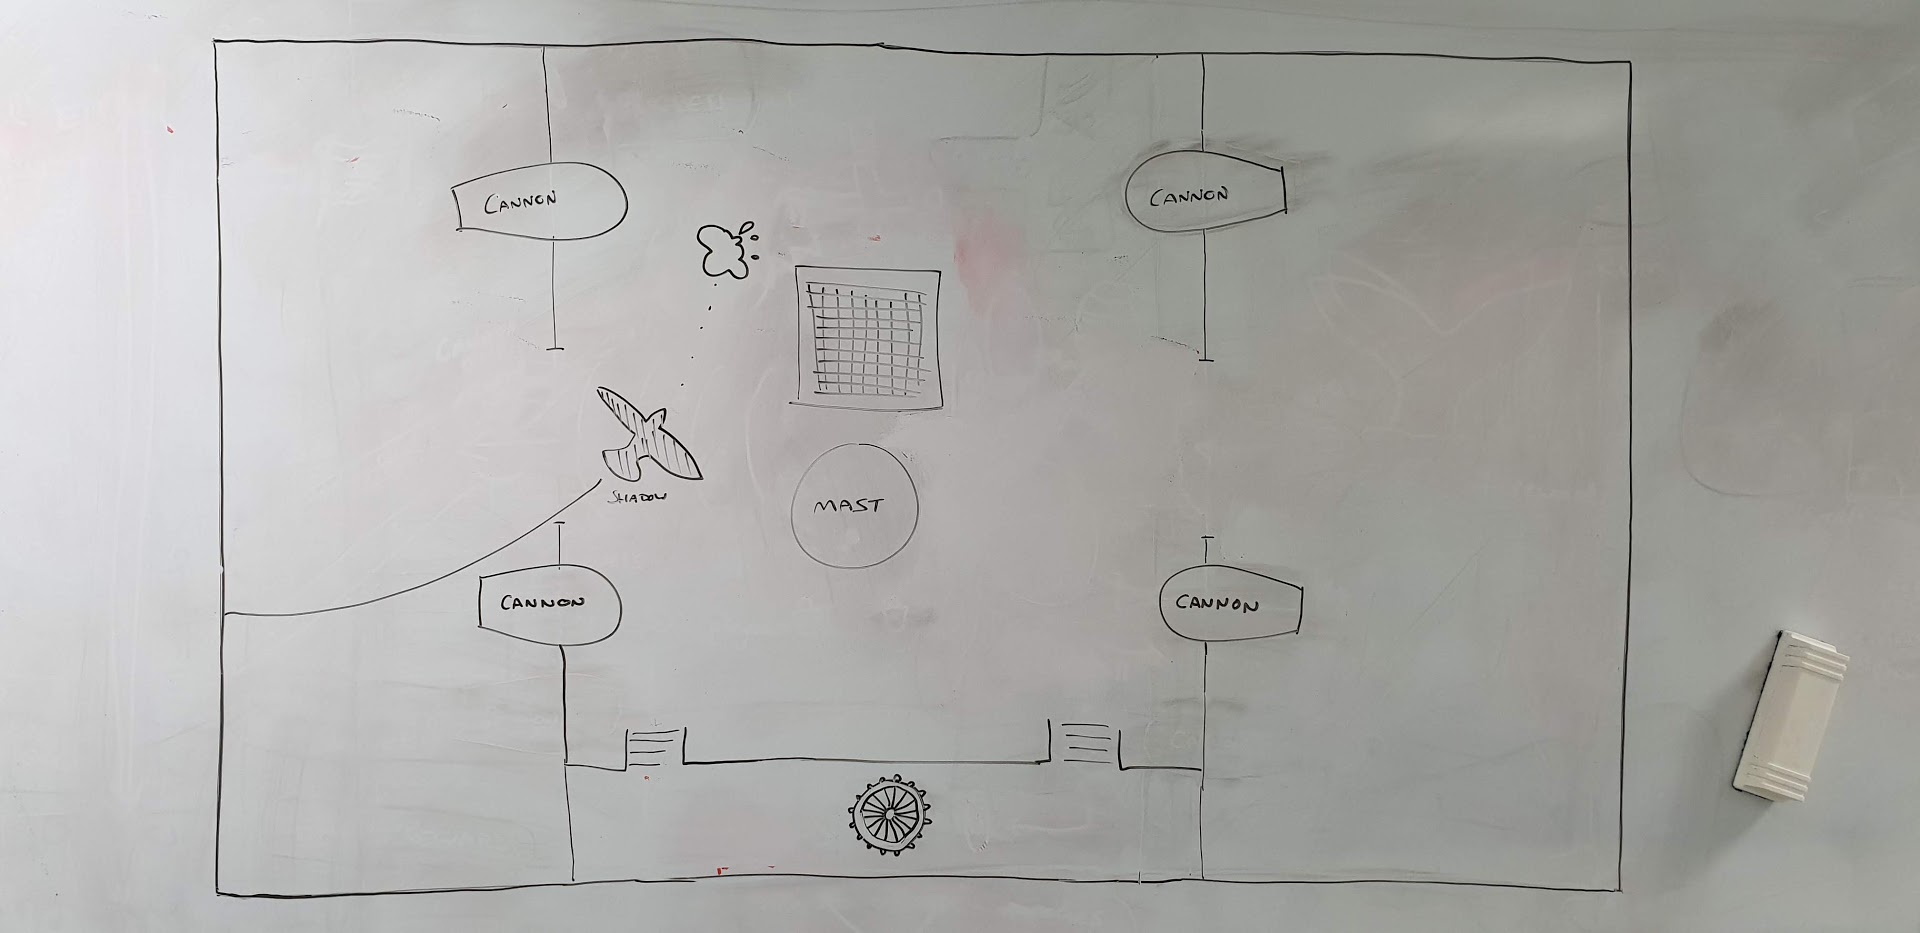 CANNON
CANNON
SHADOW
MAST
CANNON
CANNON